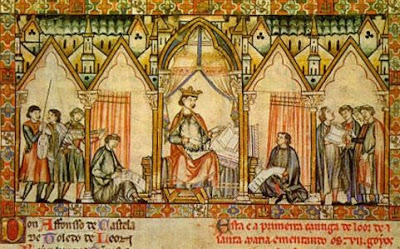 Don Affonsso de Castela
De Toledo de Leon
Esta e a primeira cantiga de loor de
santa maria ementando os.vii.goyos